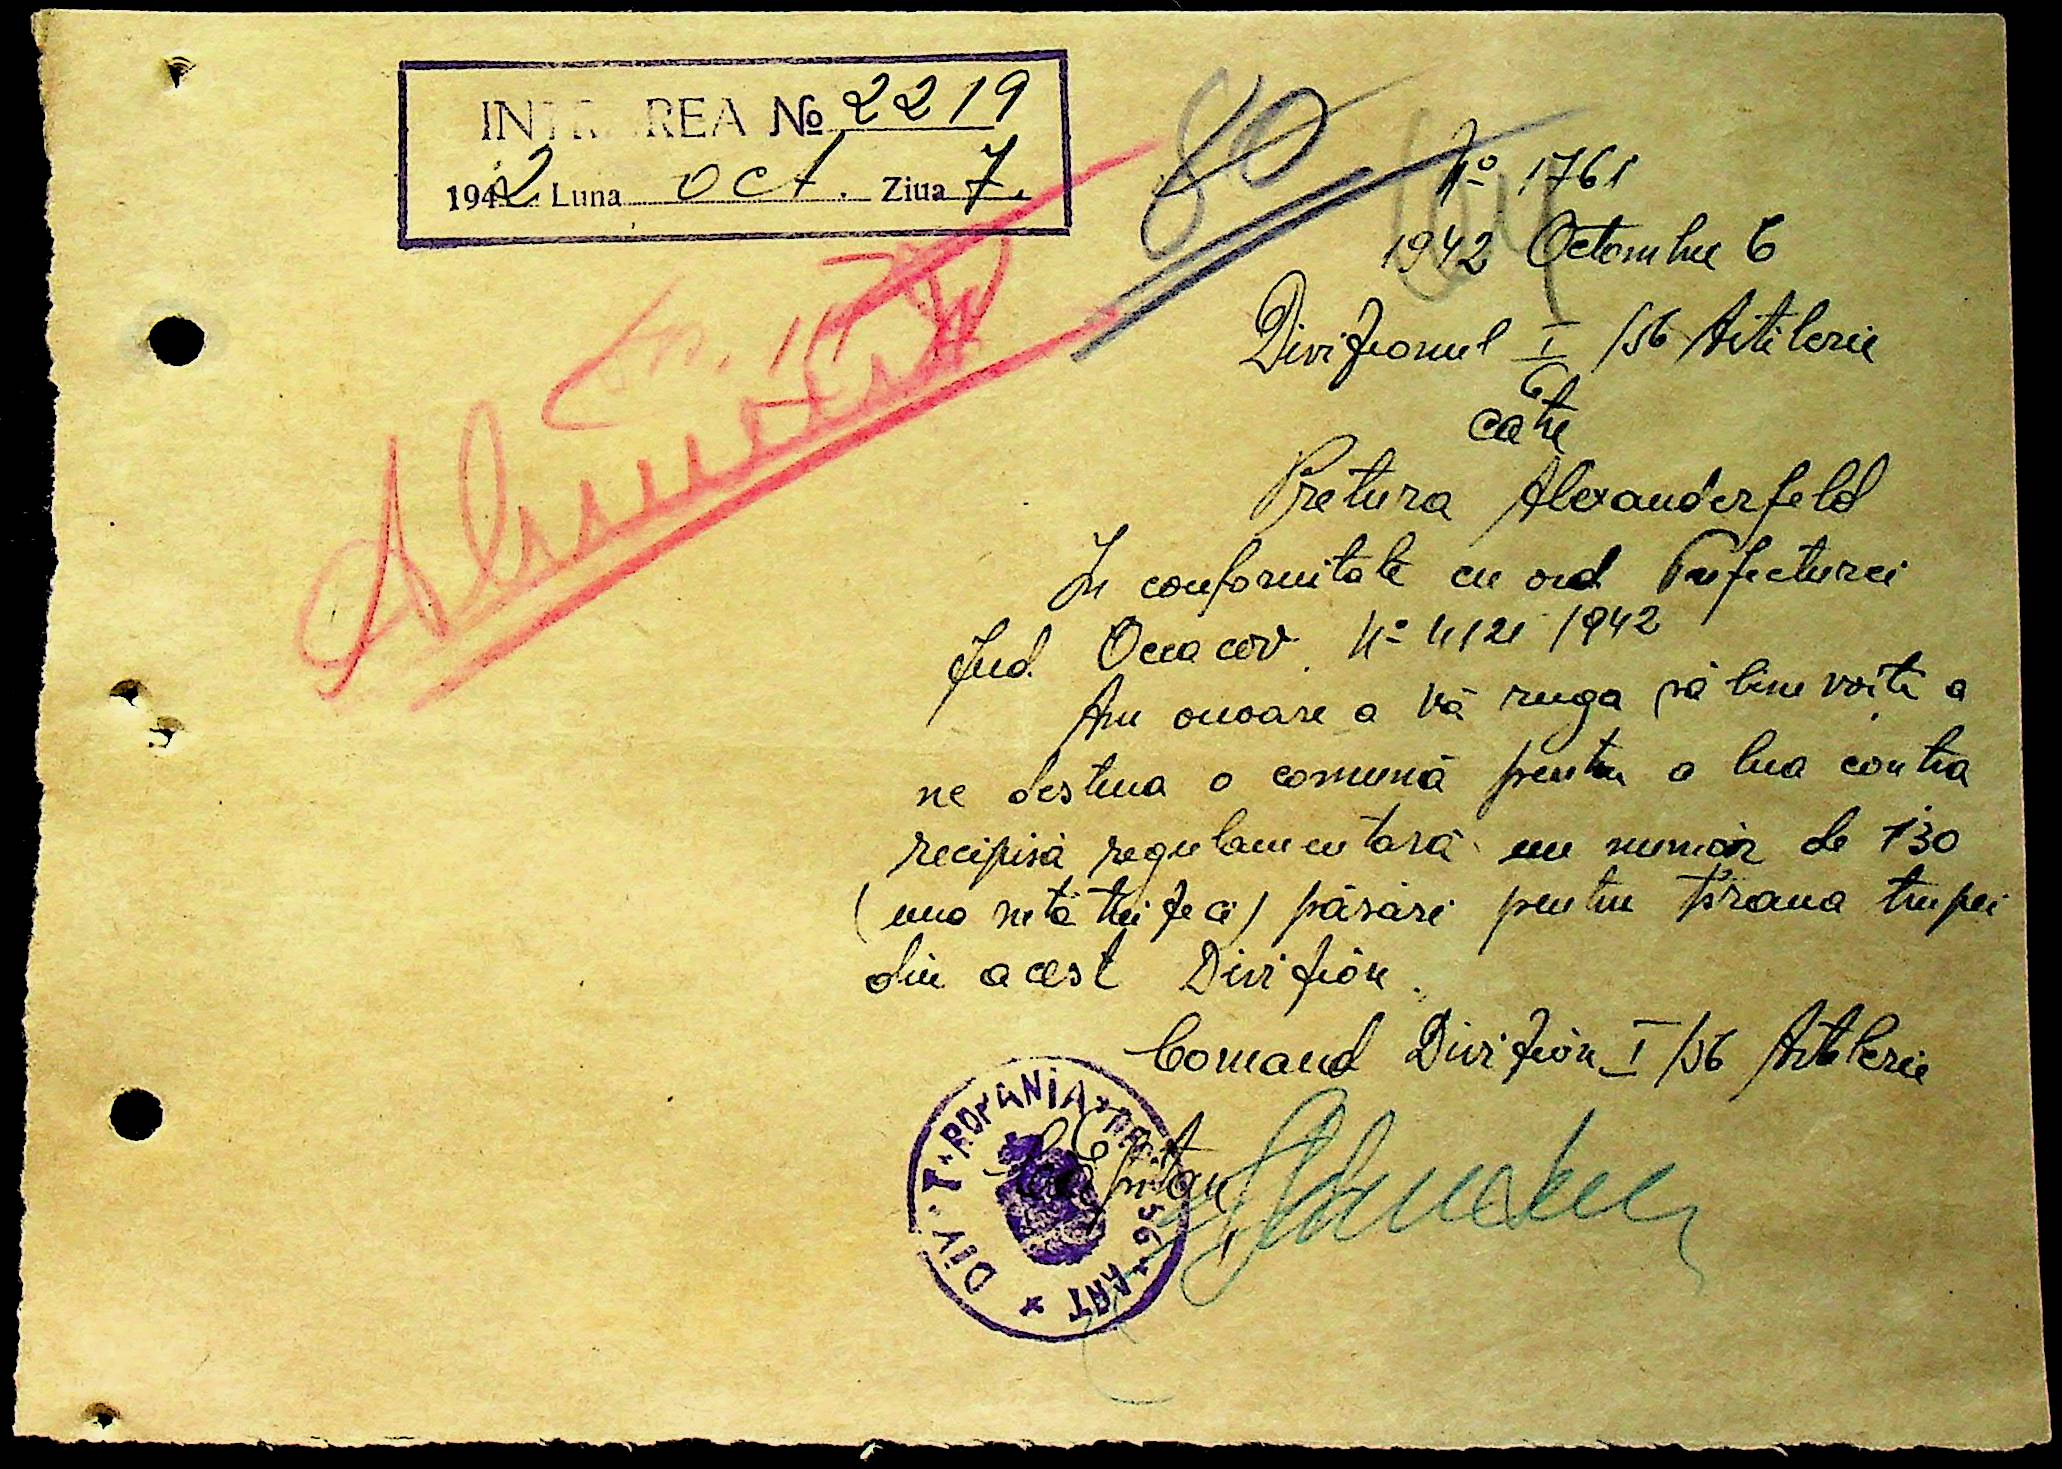 INTRAREA № 2219
1942 Luna Oct. Ziua 7.
80
№ 1761
1942 Octombrie 6
Divizionul I/56 Artilerie
către
Pretura Alexanderfeld
In conformitate cu ord Prefecturei
Jud. Oceacov. №
1942
Am onoare a Vă ruga să bine voiți a
ne destina o comună pentru a lua contra
recipisă regulamentară un număr de 130
(una sută trei zeci) păsări pentru hrana trupei
din acest Divizion.
Comand Divizion I/56 Artilerie
Căpitan
ROMANIA
56 ★ ART ★ DIV